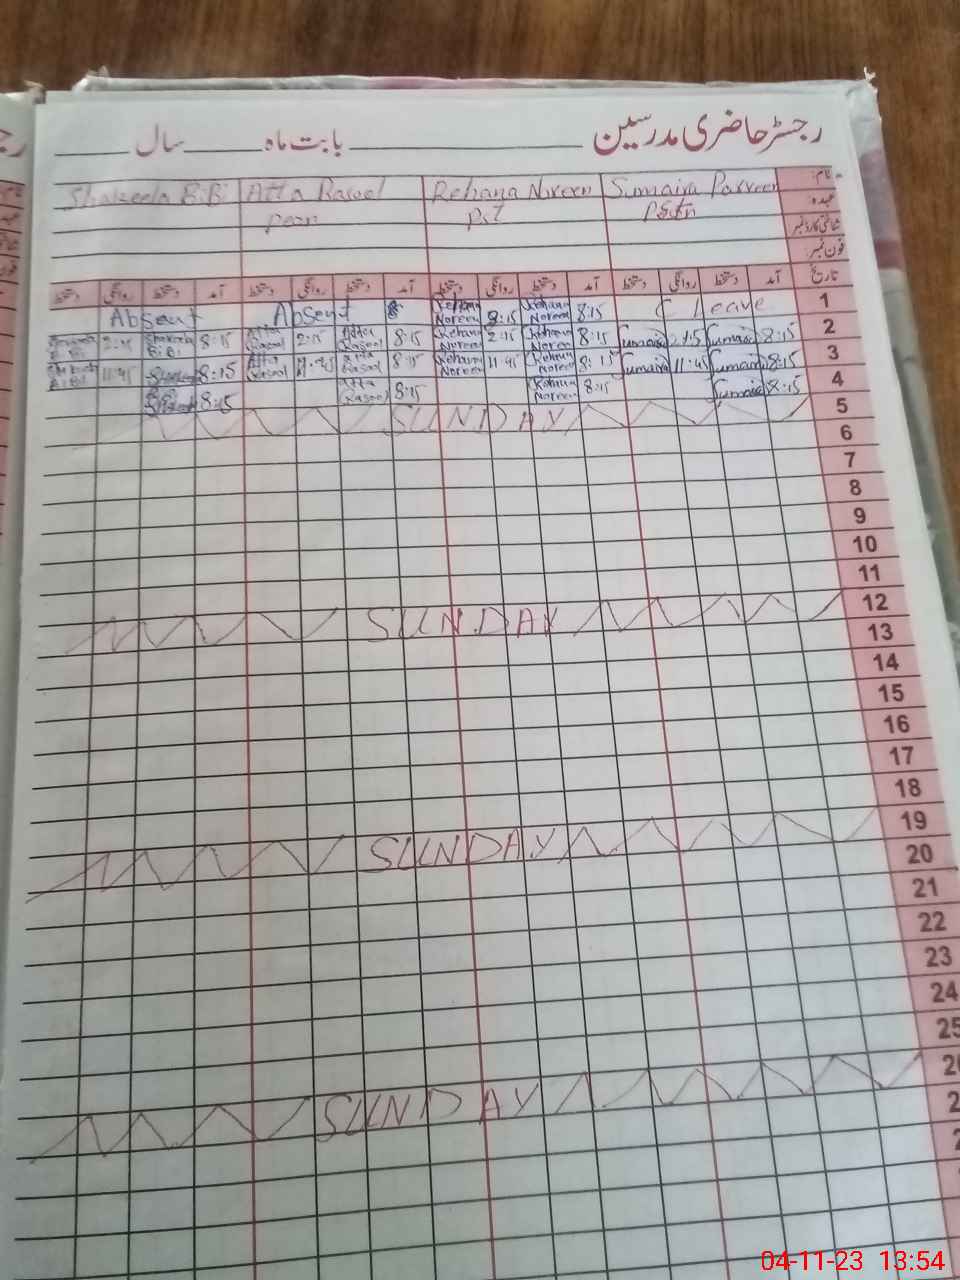 رجسٹر حاضری مدرسین ______ بابت ماہ ______ سال ______
نام: Sumaira Parveen Rehana Noreen Atta Rasool Shakeela BiBi
عہدہ Pst peon
شناختی کارڈ نمبر
فون نمبر:
تاریخ آمد دستخط روانگی دستخط آمد دستخط روانگی دستخط آمد دستخط روانگی دستخط آمد دستخط روانگی دستخط
1 C Leave 8:15 Rehana Noreen Rehana Noreen Absent Absent
2 8:15 Sumaira Sumaira 8:15 Rehana Noreen 2:15 Rehana Noreen 8:15 Atta Rasool 2:15 Atta Rasool 8:15 Shakeela BiBi 2:15 Shakeela BiBi
3 8:15 Sumaira 11:45 Sumaira 8:15 Rehana Noreen 11:45 Rehana Noreen 8:15 Atta Rasool 11:45 Atta Rasool 8:15 Shakeela 11:45 Shakeela BiBi
4 8:15 Sumaira 8:15 Rehana Noreen 8:15 Atta Rasool 8:15
5 SUNDAY
6
7
8
9
10
11
12 SUNDAY
13
14
15
16
17
18
19 SUNDAY
20
21
22
23
24
25
SUNDAY
04-11-23 13:54